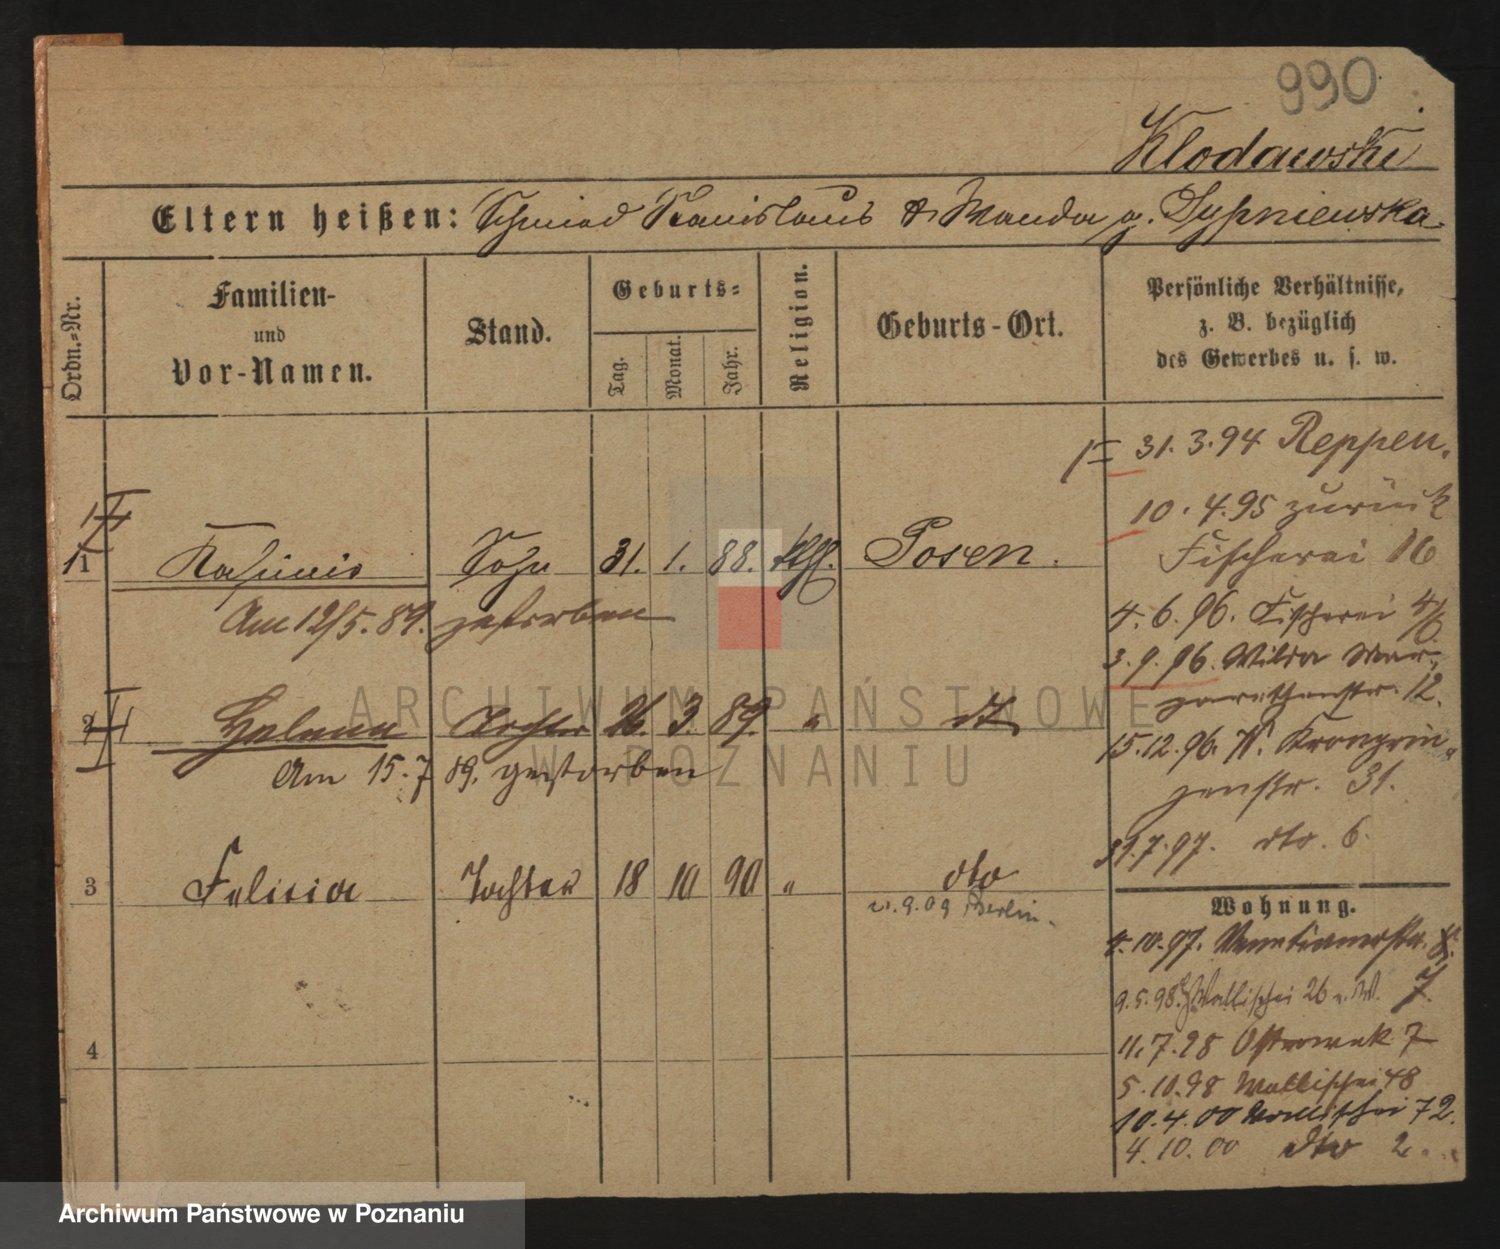 990
Klodawski
Eltern heißen: Schmied Stanislaus & Wanda g. Sypniewska
Ordn.-Nr.
Familien- und Vor-Namen.
Stand.
Geburts-
Tag.
Monat.
Jahr.
Religion.
Geburts-Ort.
Persönliche Verhältnisse,
z. B. bezüglich
des Gewerbes u. s. w.
31.3.94 Reppen.
10.4.95 zurück
Fischerei 16
4.6.96. Fischerei
3.9.96. Wilda Mar-
garethenstr. 12.
15.12.96. Kronprin-
zenstr. 31.
7.97. dto. 6
1 Kasimir Sohn 31. 1. 88. kth. Posen.
Am 12/5.89. gestorben
2 Helena Tochter 26. 3. 89. " dt
Am 15.7 89. gestorben
3 Felicia Tochter 18 10 90 " dto
9.09 Berlin.
4
Wohnung.
4.10.97. Venetianerstr.
9.5.98. Wallischei 26
7.
11.7.98 Ostrowek 7
5.10.98 Wallischei 48
10.4.00 Wallischei 72.
4.10.00 dto 2
ARCHIWUM PAŃSTWOWE
W POZNANIU
Archiwum Państwowe w Poznaniu